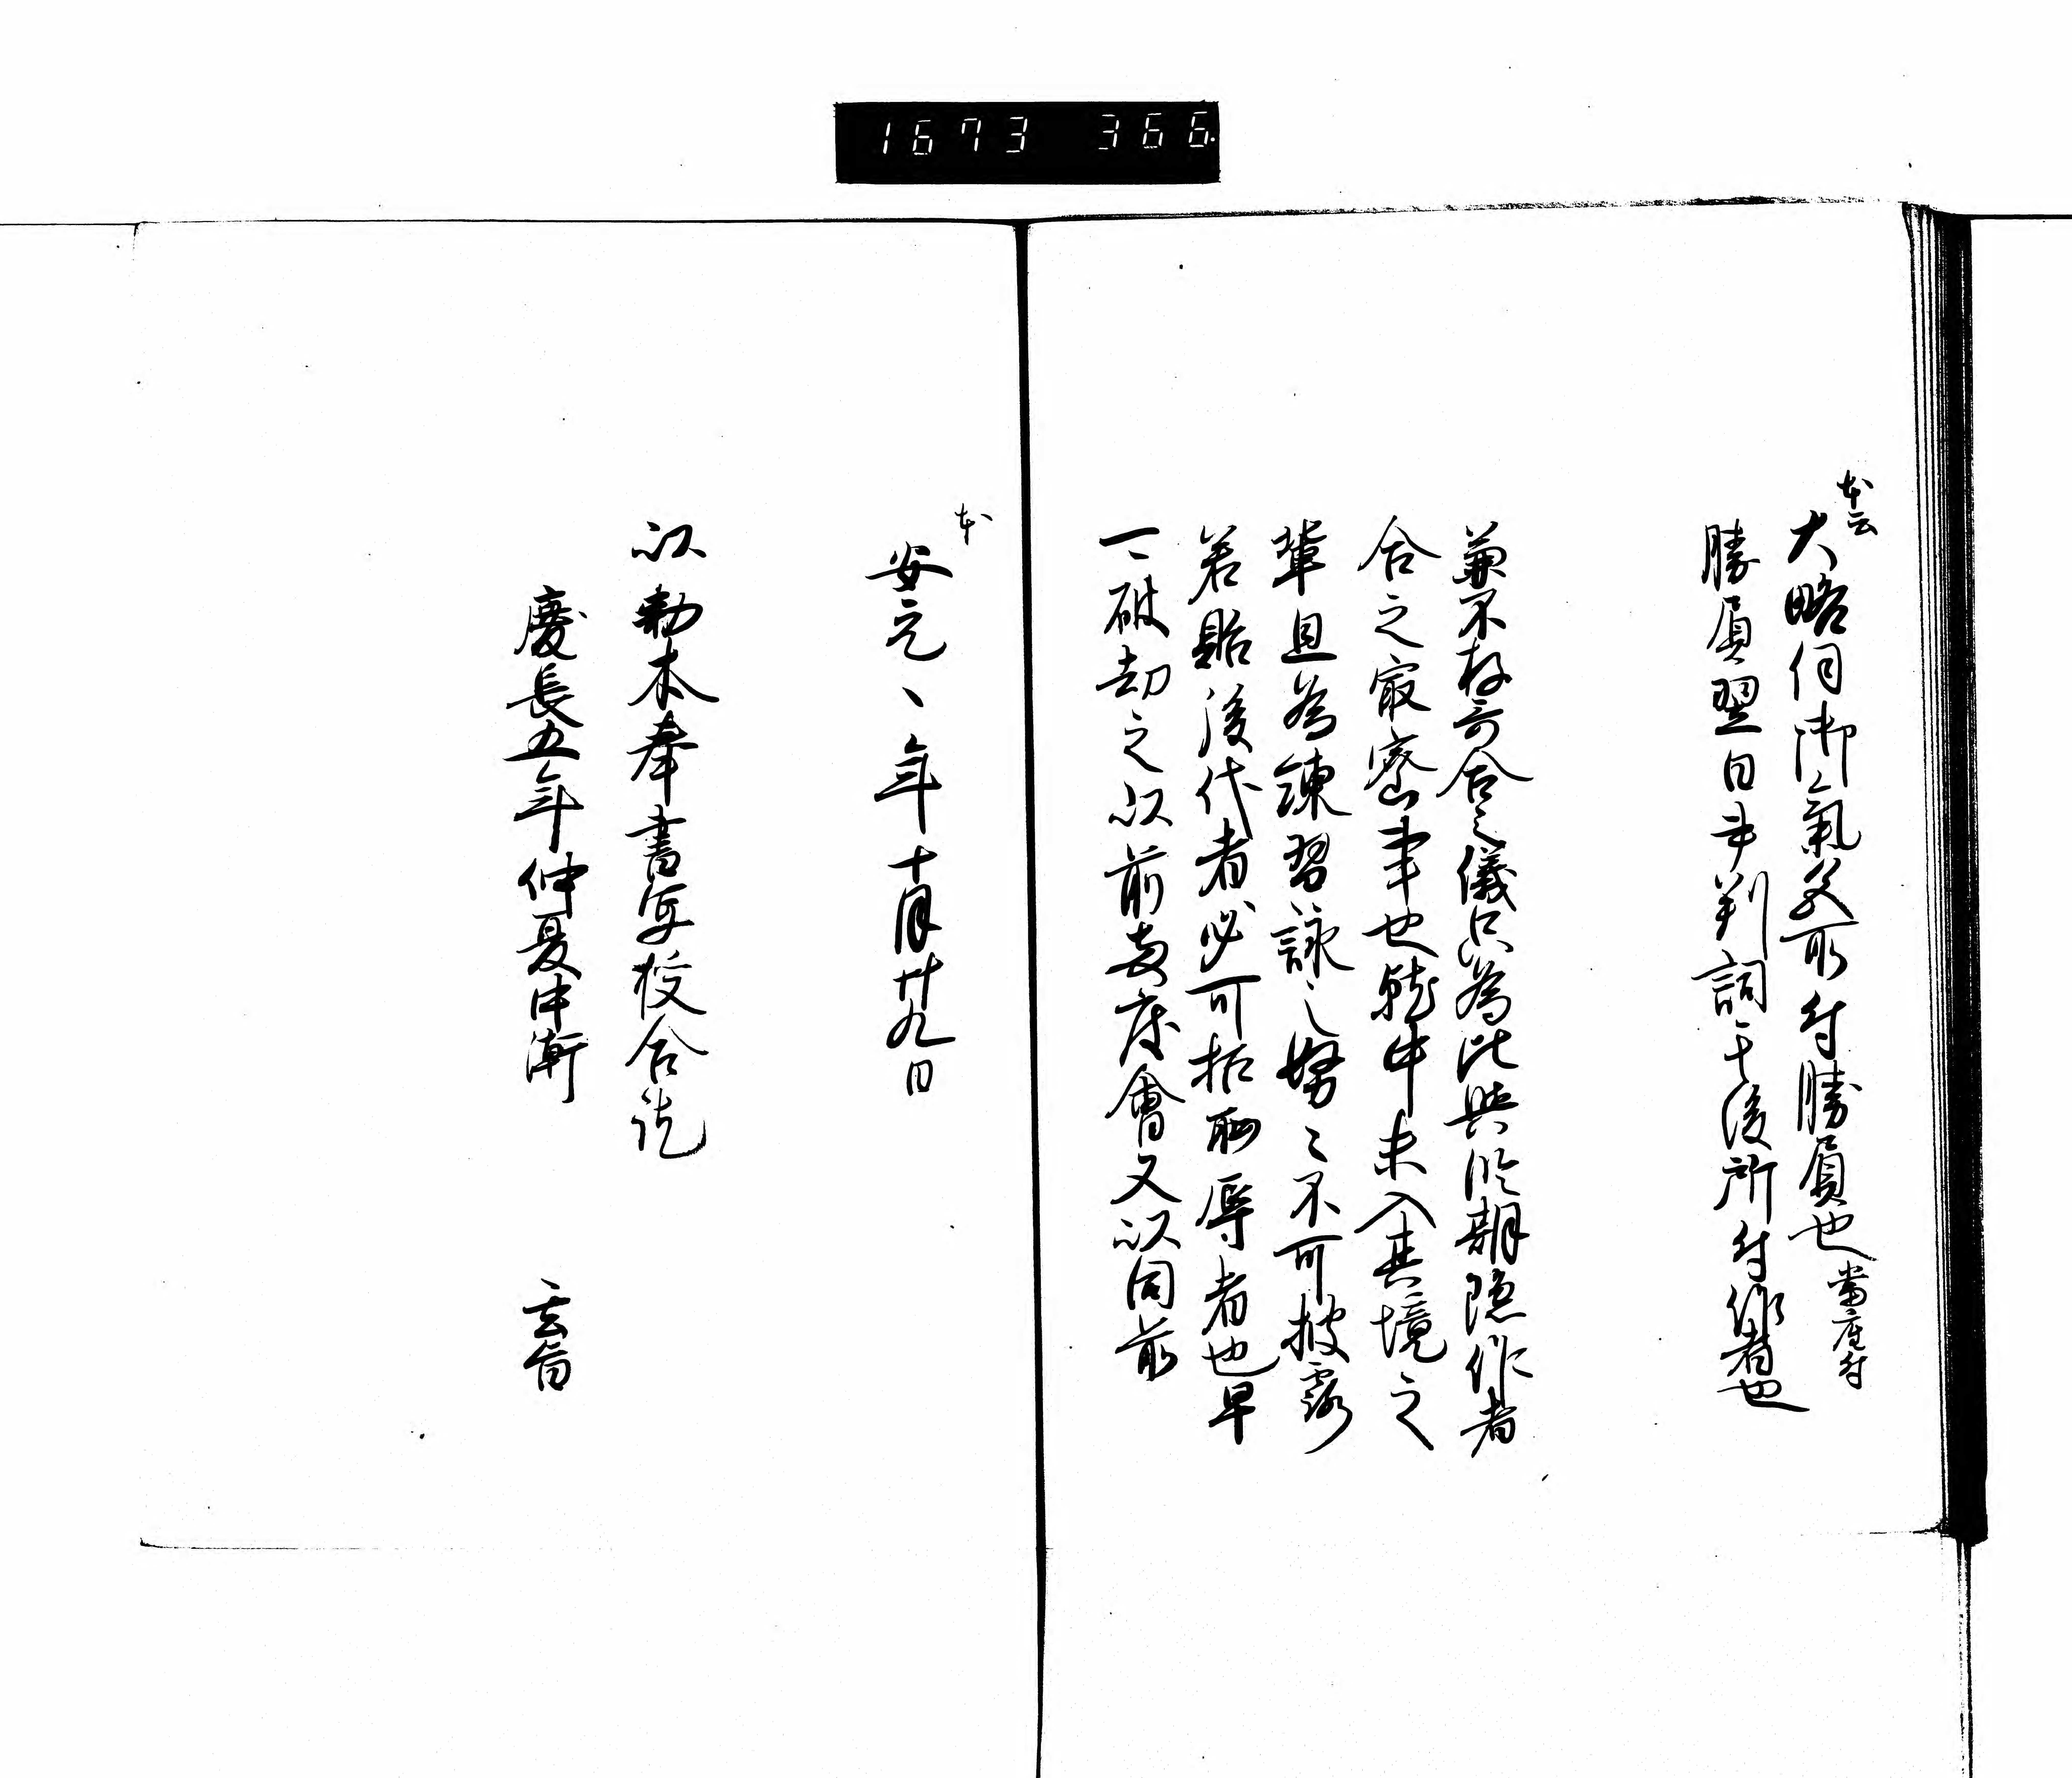 1673 366
本云
大略伺御氣色所付勝負也當座付
勝負翌日書判詞于後所付作者也
兼不存哥合之儀只為比興臨期隠作者
合之最密事也就中未入其境之
輩且為練習詠之努々不可披露
若貽後代者必可招恥辱者也早
一々破却之以前両度會又以同前
本
安元、年十月廿九日
以勅本奉書写校合訖
慶長五年仲夏中澣
玄旨